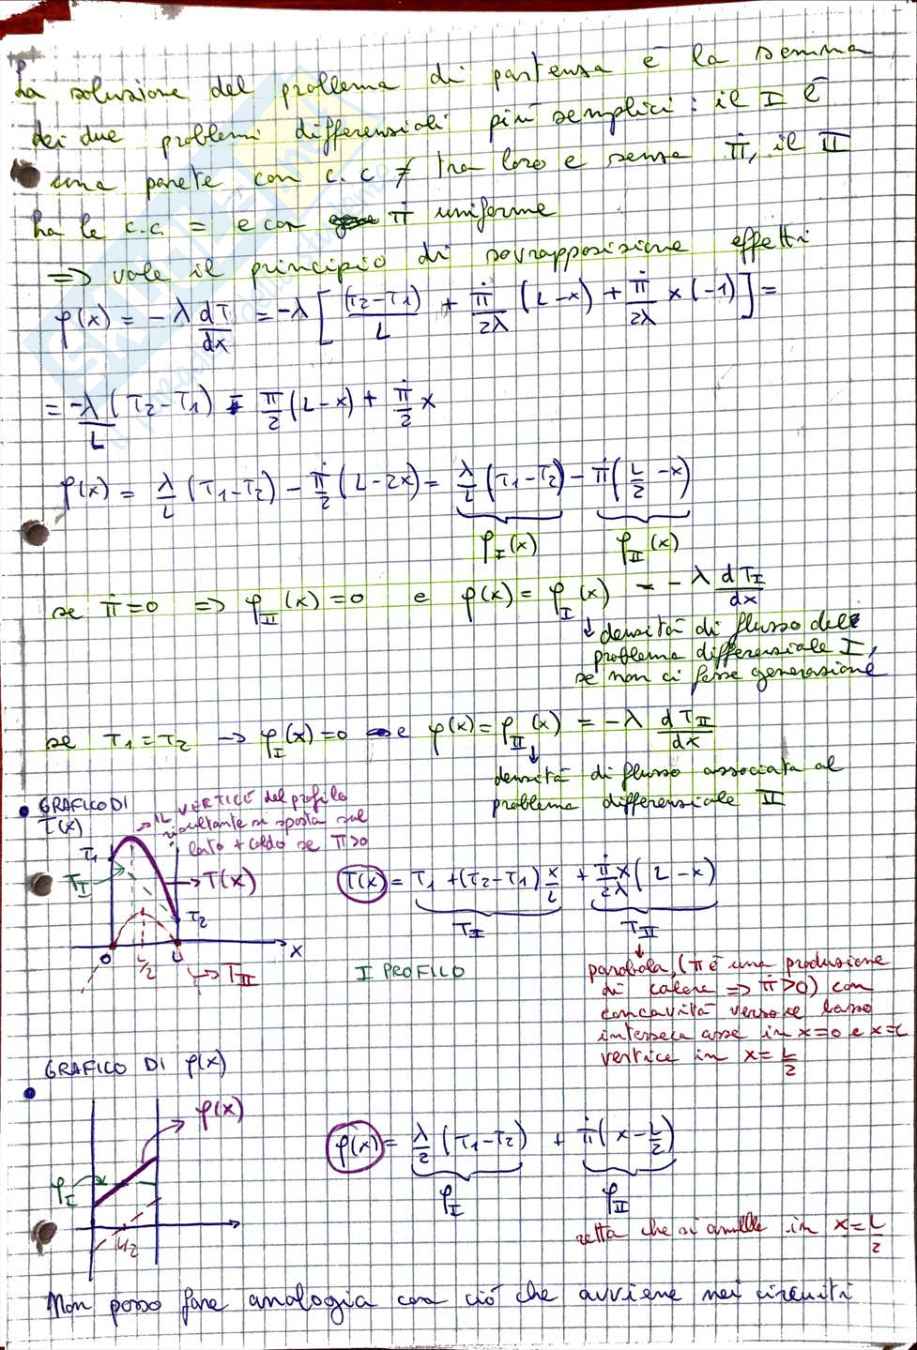 La soluzione del problema di partenza è la somma
dei due problemi differenziali più semplici: il I è
una parete con c.c ≠ tra loro e senza π̇, il II
ha le c.c. = e con π̇ uniforme
=> vale il principio di sovrapposizione effetti
φ(x) = -λ dT/dx = -λ [ (T2-T1)/L + π̇/2λ (L-x) + π̇/2λ x (-1) ] =
= -λ/L (T2-T1) - π̇/2 (L-x) + π̇/2 x
φ(x) = λ/L (T1-T2) - π̇/2 (L-2x) = λ/L (T1-T2) - π̇ (L/2 -x)
φI(x) φII(x)
se π̇=0 => φII(x)=0 e φ(x) = φI(x) = -λ dTI/dx
↓ densità di flusso del
problema differenziale I,
se non ci fosse generazione
se T1=T2 → φI(x)=0 e φ(x)=φII(x) = -λ dTII/dx
↓
densità di flusso associata al
problema differenziale II
• GRAFICO DI
T(x)
→ IL VERTICE del profilo
risultante si sposta sul
lato + caldo se π̇>0
T1
TI
→T(x)
T2
0 L/2 L x
→TII
T(x) = T1 +(T2-T1) x/L + π̇/2λ x (L-x)
TI TII
I PROFILO
↓
parabola, (π̇ è una produzione
di calore => π̇>0) con
concavità verso il basso
interseca asse in x=0 e x=L
vertice in x=L/2
• GRAFICO DI φ(x)
φ(x)
φI
L/2
φ(x) = λ/2 (T1-T2) + π̇ (x-L/2)
φI φII
retta che si annulla in x=L/2
Non posso fare analogia con ciò che avviene nei circuiti